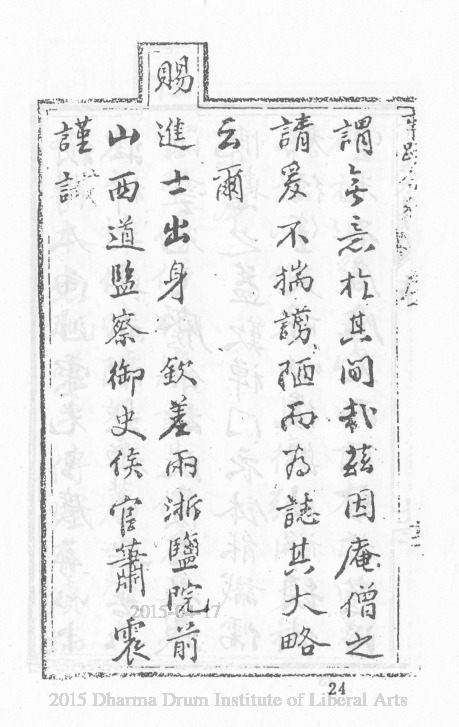 謂無意於其間哉茲因庵僧之
請爰不揣譾陋而為誌其大略
云爾
賜
進士出身 欽差兩浙鹽院前
山西道監察御史侯官蕭震
謹識
2015-04-17
24
2015 Dharma Drum Institute of Liberal Arts